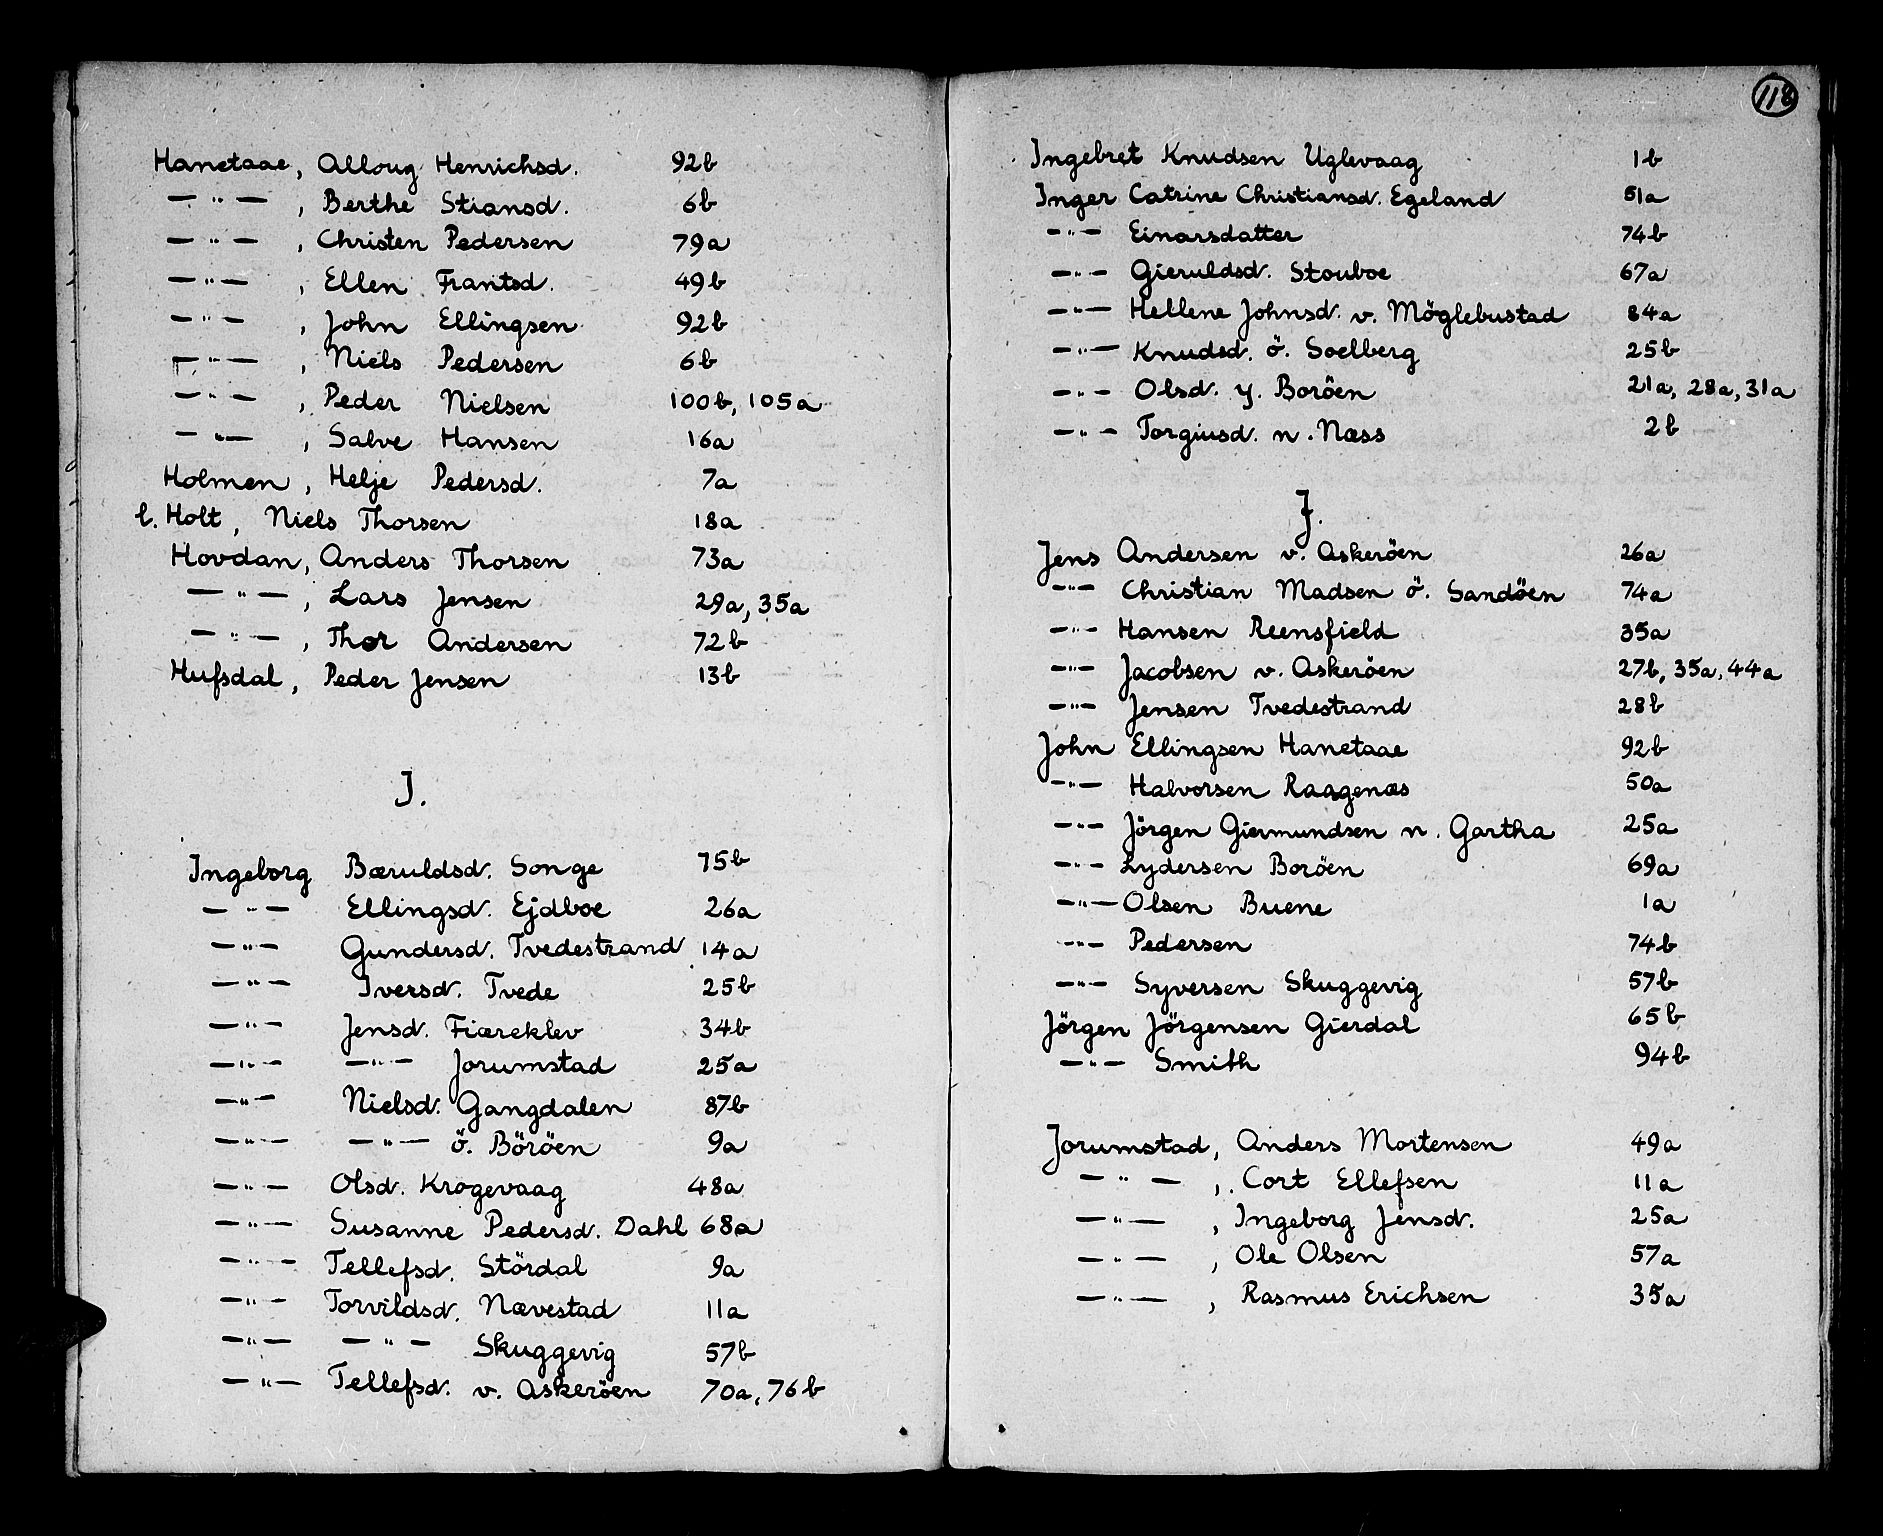 Hanetaae, Alloug Henrichsd. 92b
— " — , Berthe Stiansd. 6b
— " — , Christen Pedersen 79a
— " — , Ellen Frantsd. 49b
— " — , John Ellingsen 92b
— " — , Niels Pedersen 6b
— " — , Peder Nielsen 100b, 105a
— " — , Salve Hansen 16a
Holmen, Helje Pedersd. 7a
l. Holt, Niels Thorsen 18a
Hovdan, Anders Thorsen 73a
— " — , Lars Jensen 29a, 35a
— " — , Thor Andersen 72b
Hufsdal, Peder Jensen 13b
I.
Ingeborg Bæruldsd. Songe 75b
— " — Ellingsd. Ejdboe 26a
— " — Gundersd. Tvedestrand 14a
— " — Iversd. Tvede 25b
— " — Jensd. Fiæreklev 34b
— " — — " — Jorumstad 25a
— " — Nielsd. Gangdalen 87b
— " — — " — ö. Böröen 9a
— " — Olsd. Krogevaag 48a
— " — Susanne Pedersd. Dahl 68a
— " — Tellefsd. Stördal 9a
— " — Torvildsd. Nævestad 11a
— " — — " — Skuggevig 57b
— " — Tellefsd. v. Askeröen 70a, 76b
118
Ingebret Knudsen Uglevaag 1b
Inger Catrine Christiansd. Egeland 51a
— " — Einarsdatter 74b
— " — Gieruldsd. Stouboe 67a
— " — Hellene Johnsd. v. Möglebustad 84a
— " — Knudsd. ö. Soelberg 25b
— " — Olsd. y. Boröen 21a, 28a, 31a
— " — Torgiusd. n. Næss 2b
J.
Jens Andersen v. Askeröen 26a
— " — Christian Madsen ö. Sandöen 74a
— " — Hansen Reensfield 35a
— " — Jacobsen v. Askeröen 27b, 35a, 44a
— " — Jensen Tvedestrand 28b
John Ellingsen Hanetaae 92b
— " — Halvorsen Raagenæs 50a
— " — Jörgen Giermundsen n. Gartha 25a
— " — Lydersen Boröen 69a
— " — Olsen Buene 1a
— " — Pedersen 74b
— " — Syversen Skuggevig 57b
Jörgen Jörgensen Gierdal 65b
— " — Smith 94b
Jorumstad, Anders Mortensen 49a
— " — , Cort Ellefsen 11a
— " — , Ingeborg Jensd. 25a
— " — , Ole Olsen 57a
— " — , Rasmus Erichsen 35a